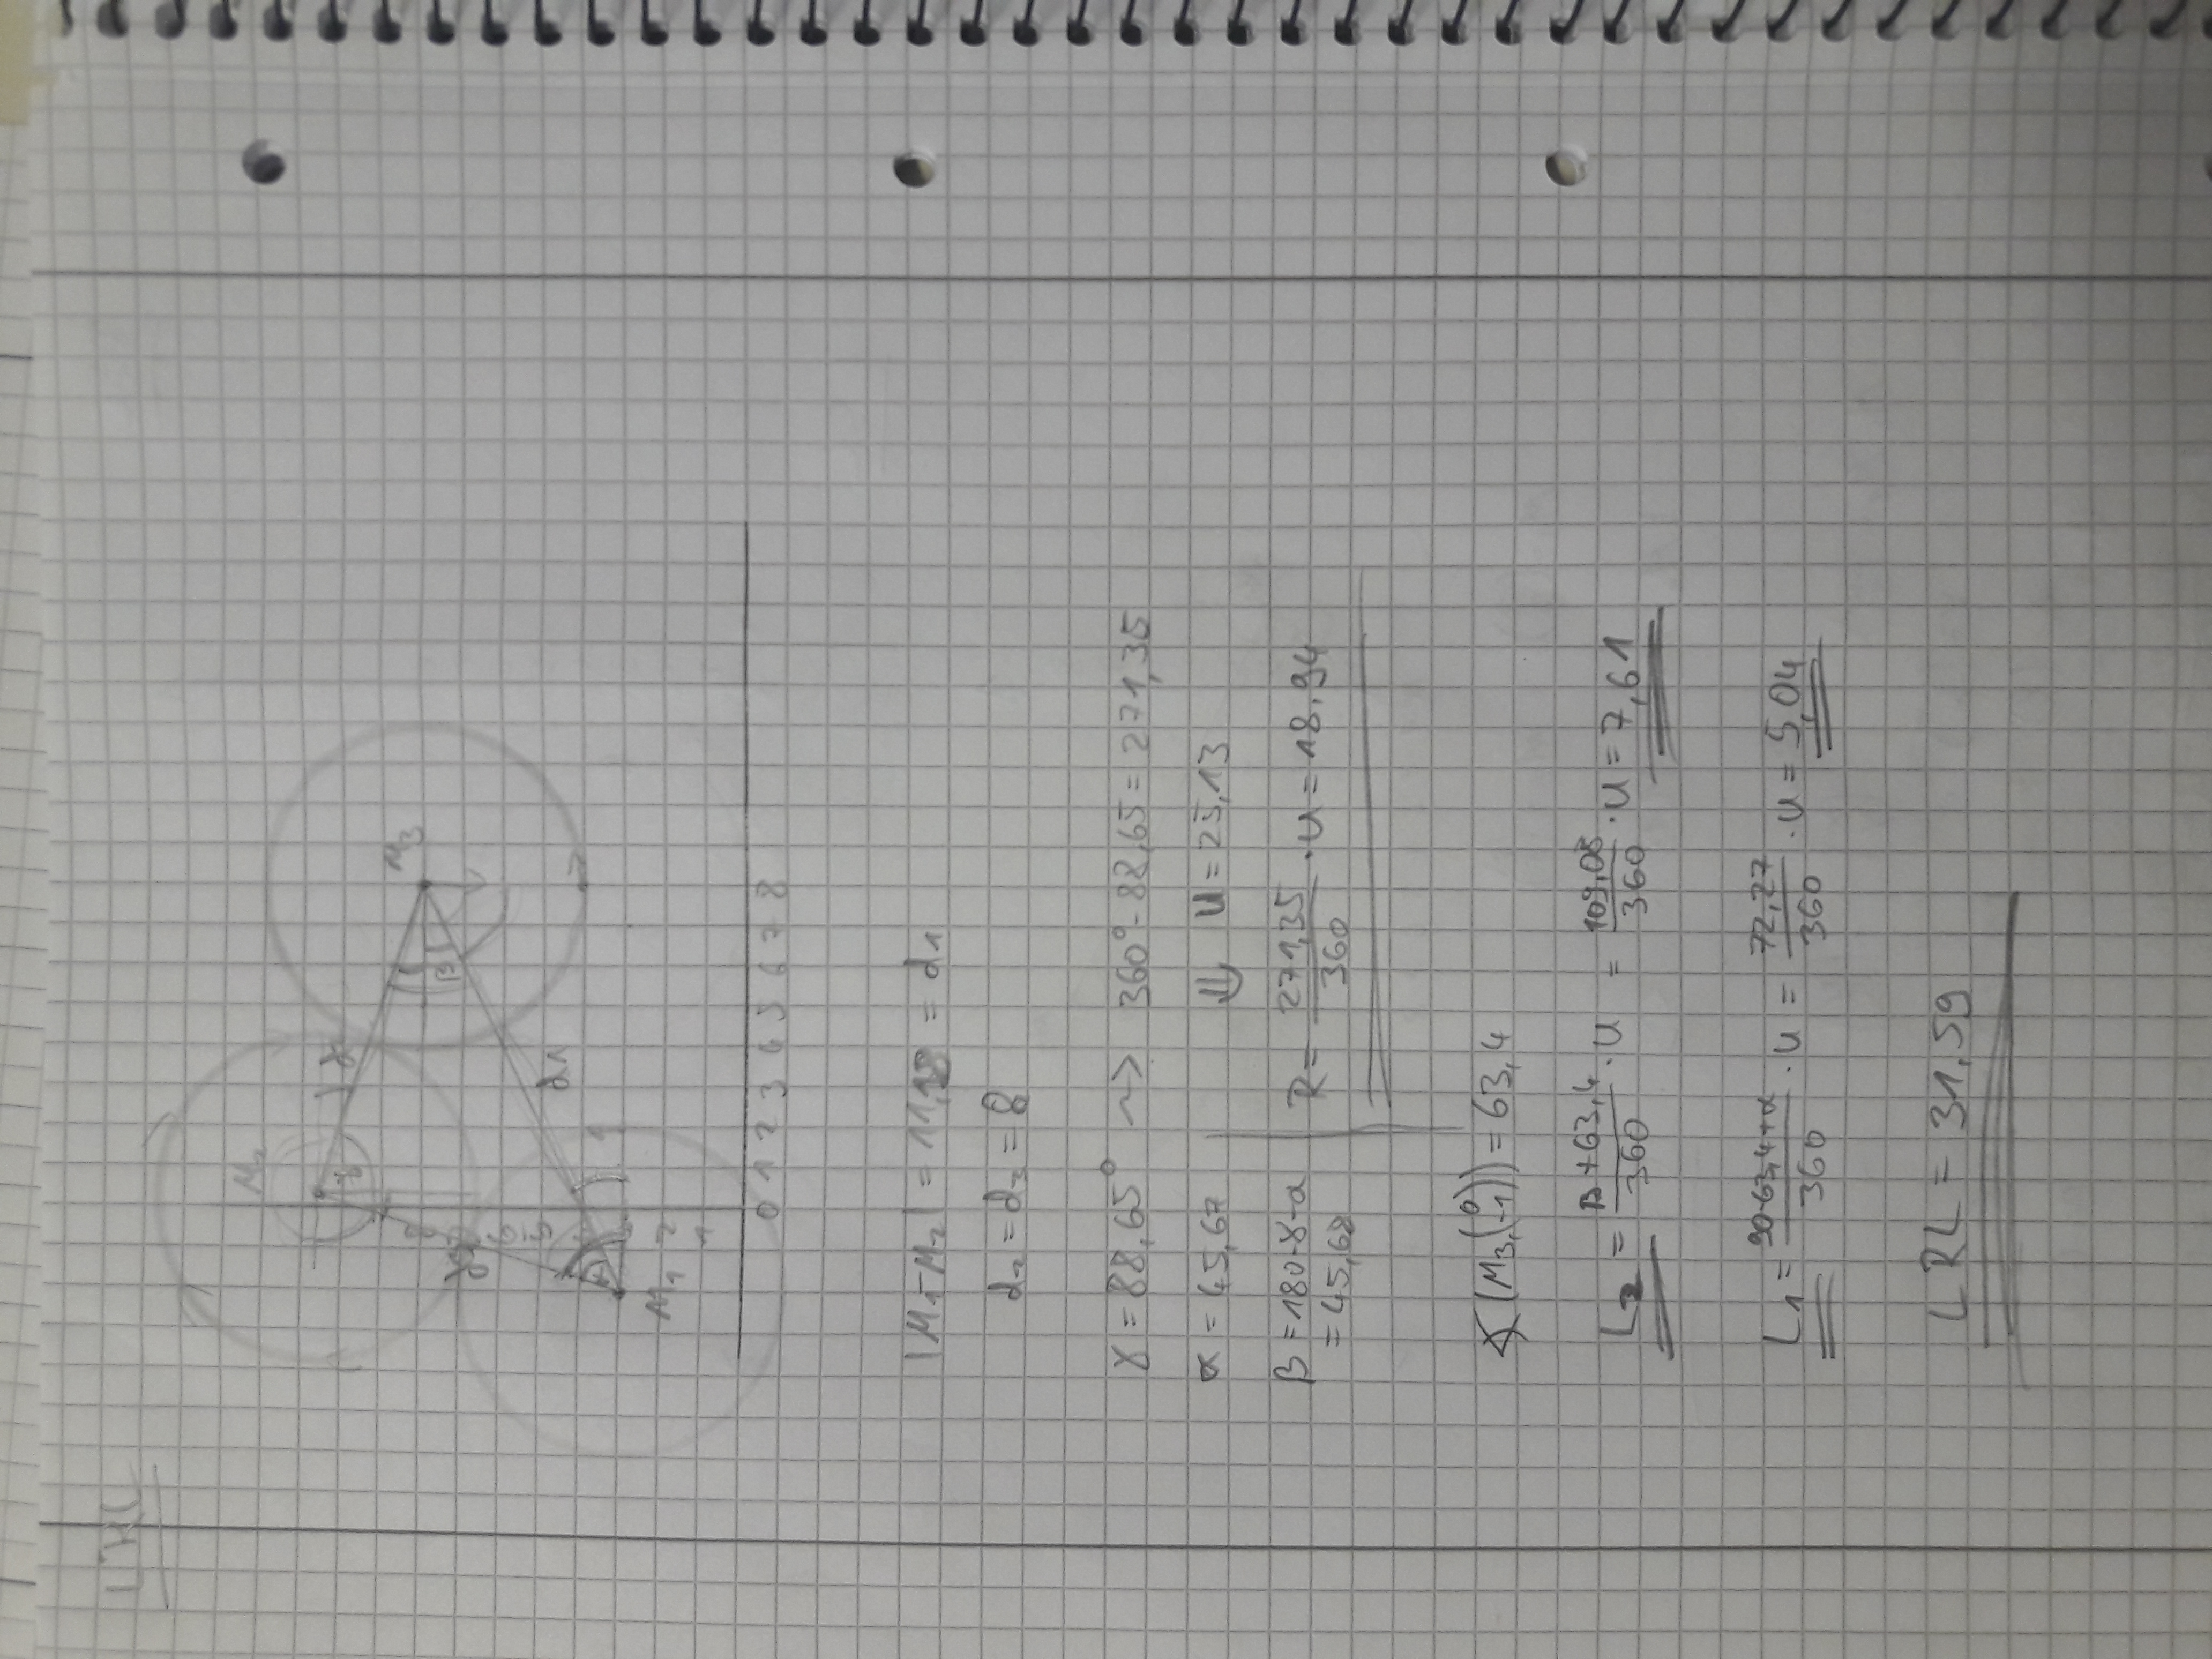 LRL
M₂
M₃
d₂
γ
β
d₃
α
d₁
M₁
8
6
5
2
1
0 1 2 3 4 5 6 7 8
|M₁-M₂| = 11,18 = d₁
d₂ = d₃ = 8
γ = 88,65° ~> 360°-88,65 = 271,35
α = 45,67 ⇓ U = 25,13
β = 180-γ-α R = 271,35/360 · U = 18,94
= 45,68
∡(M₃,(0 -1)) = 63,4
L₂ = β+63,4/360 · U = 109,08/360 · U = 7,61
L₁ = 90-63,4+α/360 · U = 72,27/360 · U = 5,04
LRL = 31,59